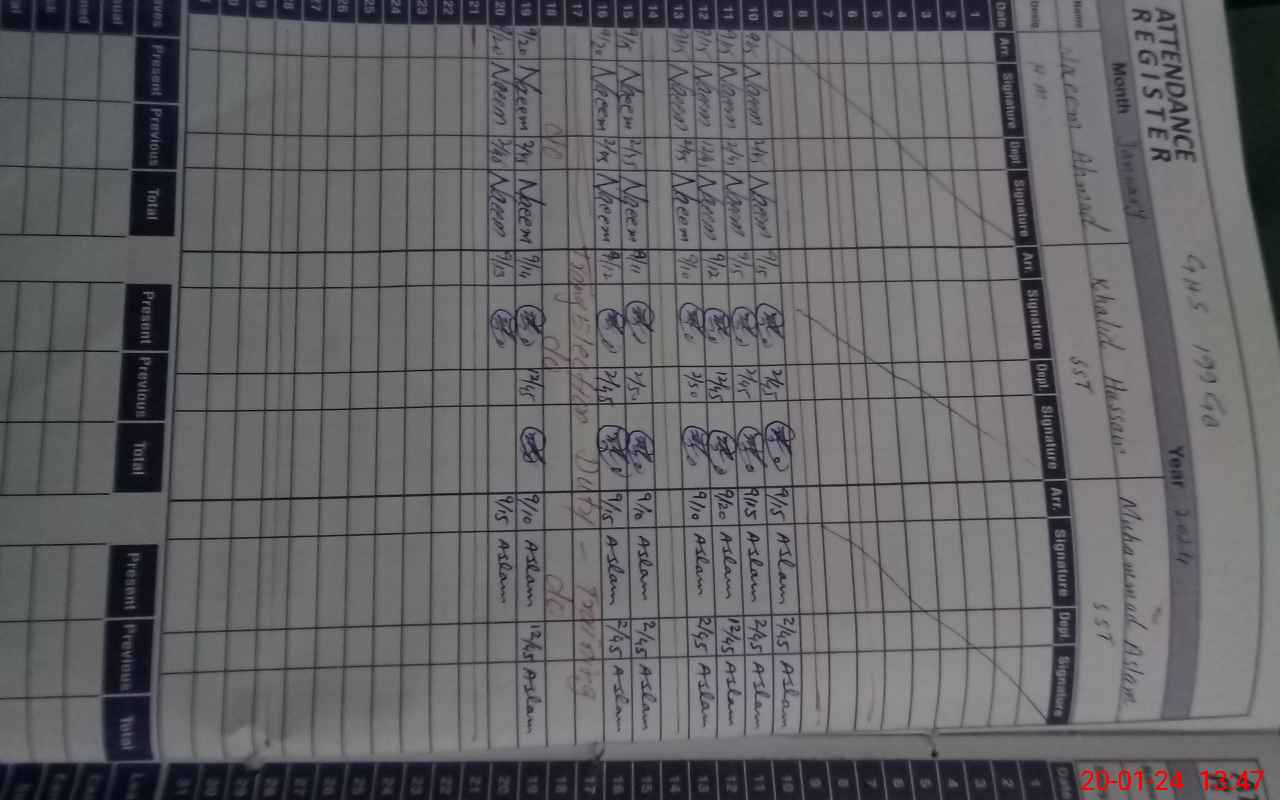 ATTENDANCE
REGISTER
GHS 199 GB
Month January Year 2024
Name Naeem Ahmad Khalid Hassan Muhammad Aslam
H.M SST SST
Date Arr. Signature Dept. Signature Arr. Signature Dept. Signature Arr. Signature Dept. Signature
1
2
3
4
5
6
7
8
9
10 9/15 Naeem 2/45 Naeem 9/15 2/45 9/15 Aslam 2/45 Aslam
11 9/15 Naeem 2/45 Naeem 9/15 2/45 9/15 Aslam 2/45 Aslam
12 9/15 Naeem 12/45 Naeem 9/12 12/45 9/20 Aslam 12/45 Aslam
13 9/15 Naeem 2/45 Naeem 9/10 2/50 9/10 Aslam 2/45 Aslam
14
15 9/15 Naeem 2/45 Naeem 9/11 2/50 9/10 Aslam 2/45 Aslam
16 9/20 Naeem 2/45 Naeem 9/12 2/45 9/15 Aslam 2/45 Aslam
17 Election Duty - Training
18 do do do
19 9/20 Naeem 2/45 Naeem 9/14 12/45 9/10 Aslam 12/45 Aslam
20 9/20 Naeem 2/40 Naeem 9/13 9/15 Aslam
21
22
23
24
25
26
27
28
29
30
31
Present Previous Total Present Previous Total Present Previous Total
20-01-24 13:47